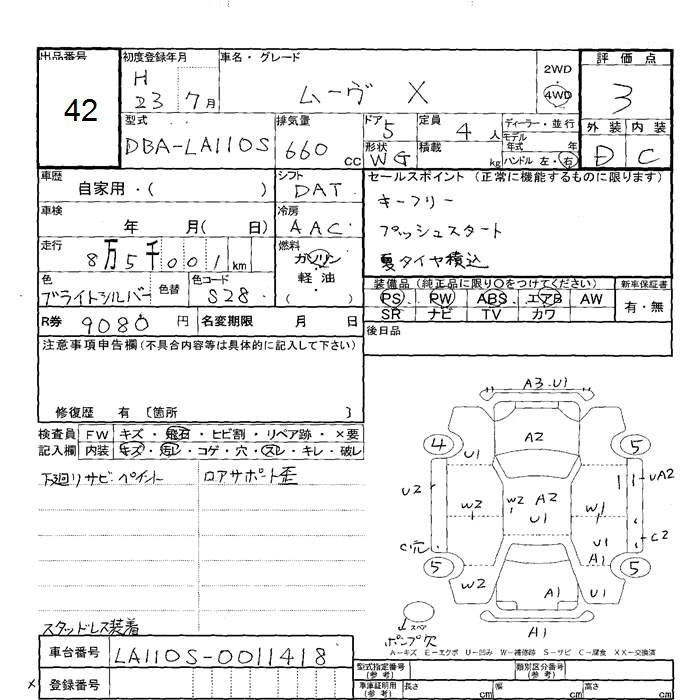 出品番号
42
初度登録年月
H
23 7月
車名・グレード
ムーヴ X
2WD
4WD
評価点
3
型式
DBA-LA110S
排気量
660 cc
ドア 5
定員 4 人
ディーラー・並行
モデル
年式 年
ハンドル 左・右
形状 WG
積載 kg
外装 内装
D C
車歴
自家用・( )
シフト
DAT
セールスポイント(正常に機能するものに限ります)
キーフリー
プッシュスタート
夏タイヤ積込
車検
年 月( 日)
冷房
AAC
走行
8万5千001km
燃料
ガソリン
軽油
( )
色
ブライトシルバー
色替
色コード
S28
装備品(純正品に限り○をつけてください)
新車保証書
PS PW ABS エアB AW
有・無
SR ナビ TV カワ
R券 9080 円
名変期限 月 日
後日品
注意事項申告欄(不具合内容等は具体的に記入して下さい)
修復歴 有 〔箇所 〕
検査員 FW キズ・飛石・ヒビ割・リペア跡・×要
記入欄 内装 キズ・汚レ・コゲ・穴・スレ・キレ・破レ
下廻リサビ・ペイント
ロアサポート歪
スタッドレス装着
A3.U1
4
A2
5
U1
U2
W2
W2 A2
U1
W1
UA2
C2
C穴
U1
A1
5
5
W2
A1
U1
スペア
ポンプ欠
A1
A-キズ E-エクボ U-凹み W-補修跡 S-サビ C-腐食 XX-交換済
車台番号 LA110S-0011418
型式指定番号
(参考)
類別区分番号
(参考)
× 登録番号
車庫証明用
(参考)
長さ cm
幅 cm
高さ cm